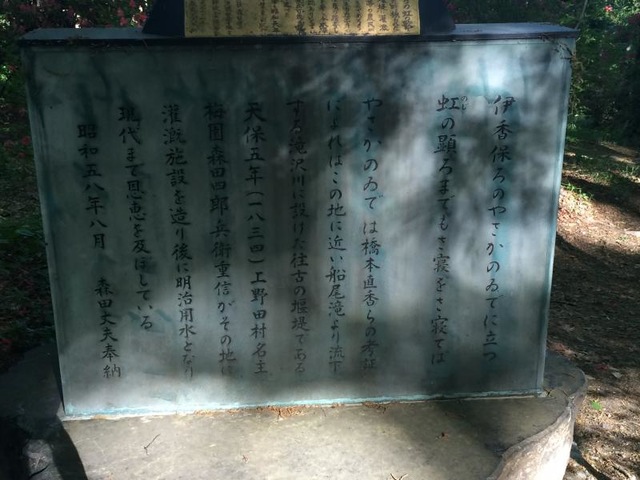 伊香保ろのやさかのゐでに立つ
虹の顕ろまでもさ寝をさ寝てば
やさかのゐでは橋本直香らの考証
によればこの地に近い船尾滝より流下
する滝沢川に設けた往古の堰堤である
天保五年(一八三四)上野田村名主
梅園森田四郎兵衛重信がその地に
灌漑施設を造り後に明治用水となり
現代まで恩恵を及ぼしている
昭和五八年八月 森田丈夫奉納